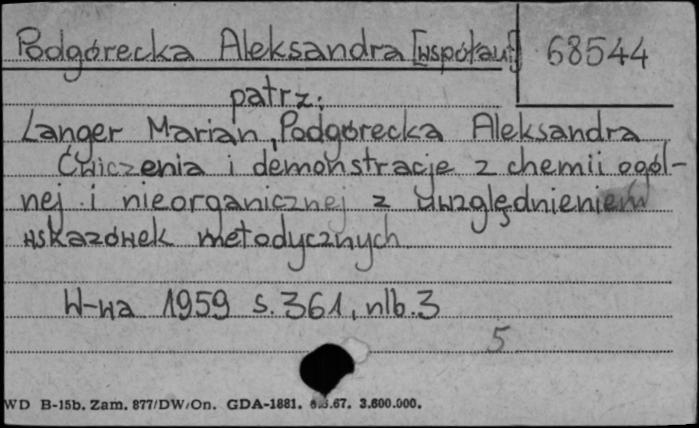 Podgórecka Aleksandra [współaut] 68544
patrz:
Langer Marian, Podgórecka Aleksandra
Ćwiczenia i demonstracje z chemii ogól-
nej i nieorganicznej z uwzględnieniem
wskazówek metodycznych
W-wa 1959 s. 361, nlb. 3
5
WD B-15b. Zam. 877/DW/On. GDA-1881. .67. 3.600.000.